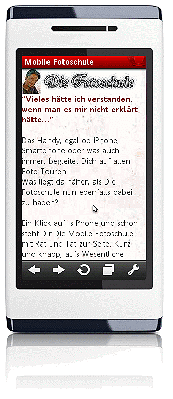 Mobile Fotoschule
Die Fotoschule
"Vieles hätte ich verstanden,
wenn man es mir nicht erklärt
hätte..."
Das Handy, egal ob iPhone,
Smartphone oder was auch
immer, begleitet Dich auf allen
Foto-Touren.
Was liegt da näher, als Die
Fotoschule nun ebenfalls dabei
zu haben?
Ein Klick auf's Phone und schon
steht Dir Die Mobile Fotoschule
mit Rat und Tat zur Seite. Kurz
und knapp, auf's Wesentliche